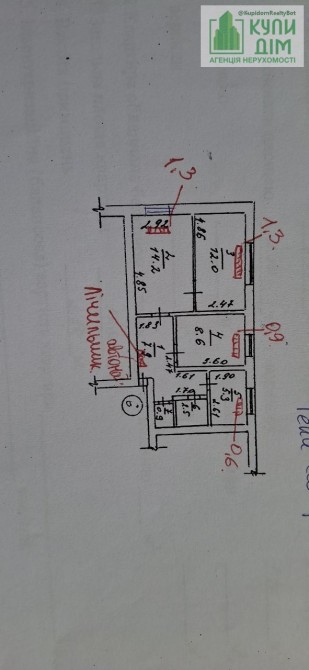 @KupidomRealtyBot
КУПИ
ДІМ
АГЕНЦІЯ НЕРУХОМОСТІ
1,3
1,3
0,9
0,6
Лічильник
2,92
2
14.2
4.85
4.86
3
12.0
2.47
1.85
1
4
8.6
3.60
1.47
1.61
1.90
5
5.3
6
1.5
7
0.9